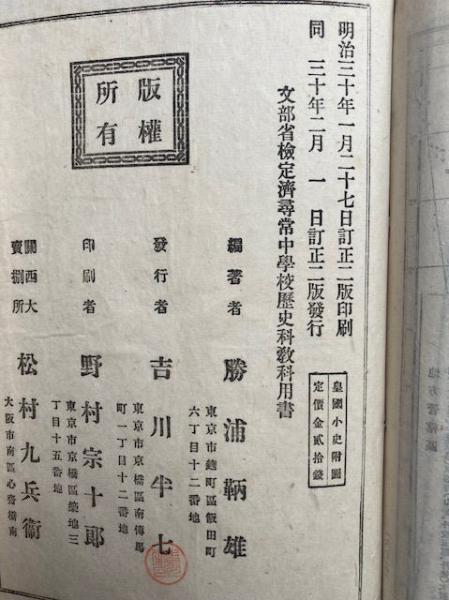 明治三十年一月二十七日訂正二版印刷
同　三十年二月　一　日訂正二版發行
皇國小史附圖
定價金貳拾錢
文部省檢定濟尋常中學校歷史科敎科用書
版權
所有
編著者　勝浦鞆雄
東京市麴町區飯田町
六丁目十二番地
發行者　吉川半七
東京市京橋區南傳馬
町一丁目十二番地
印刷者　野村宗十郎
東京市京橋區築地三
丁目十五番地
關西大
賣捌所　松村九兵衞
大阪市南區心齋橋南